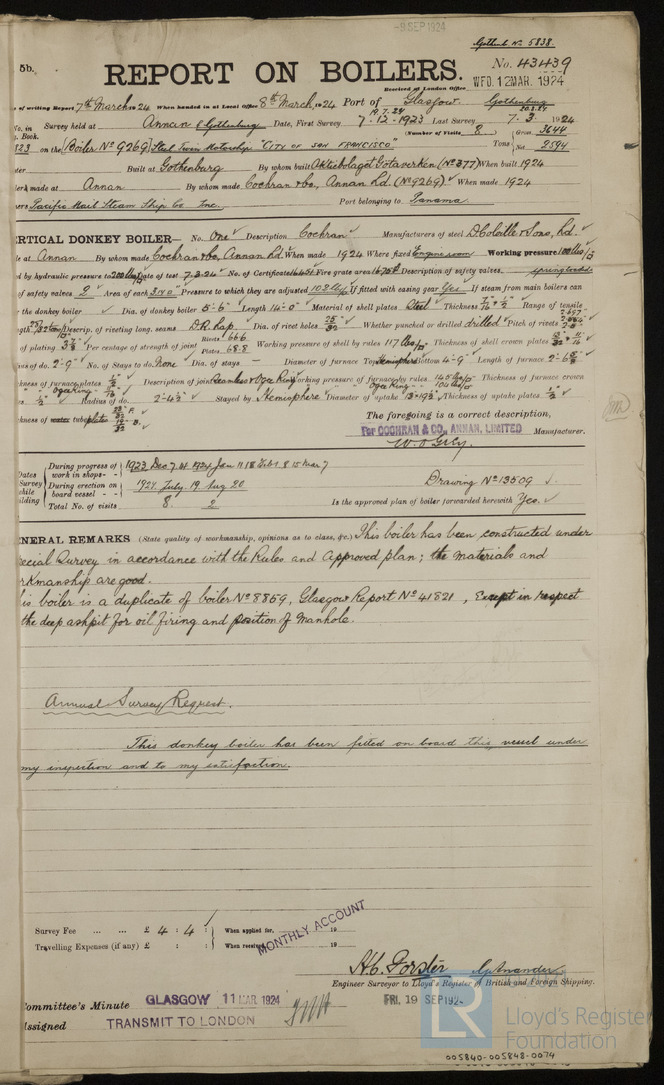 -9 SEP 1924
Gothenb. No 5838.
5b.
REPORT ON BOILERS.
No. 43439
Received at London Office WED. 12 MAR. 1924
of writing Report 7th March 1924 When handed in at Local Office 8th March 1924 Port of Glasgow Gothenburg
19.7.24 20.8.24
No. in Survey held at Annan & Gothenburg Date, First Survey 7-12-1923 Last Survey 7.3.1924
Book.
(Number of Visits 8) Gross 3644
823 on the (Boiler No 9269) Steel Twin Motorship "CITY OF SAN FRANCISCO" Tons Net 2594
Built at Gothenburg By whom built Aktiebolaget Gotaverken (No 377) When built 1924
made at Annan By whom made Cochran & Co, Annan Ld. (No 9269) When made 1924
Pacific Mail Steam Ship Co Inc. Port belonging to Panama.
VERTICAL DONKEY BOILER— No. One Description Cochran Manufacturers of steel D Colville & Sons, Ld.
at Annan By whom made Cochran & Co, Annan Ld. When made 1924 Where fixed Engine room Working pressure 100 lbs
by hydraulic pressure to 200 lbs Date of test 7-3-24 No. of Certificate 16451 Fire grate area Description of safety valves. spring loaded
of safety valves 2 Area of each Pressure to which they are adjusted If fitted with easing gear Yes. If steam from main boilers can
the donkey boiler Dia. of donkey boiler 5'-6" Length 14'-0" Material of shell plates Steel Thickness Range of tensile
Descrip. of riveting long. seams D.R. Lap. Dia. of rivet holes Whether punched or drilled drilled Pitch of rivets
of plating Per centage of strength of joint Rivets 66.6 Plates 68.8 Working pressure of shell by rules 117 lbs Thickness of shell crown plates
of do. 2'-9" No. of Stays to do. None Dia. of stays — Diameter of furnace Top Hemisphere Bottom 4'-9" Length of furnace
of furnace plates Description of joint Seamless & Ogee Ring Working pressure of furnace by rules Thickness of furnace crown
Ogee Ring Radius of do. 2'-4½" Stayed by Hemisphere Diameter of uptake Thickness of uptake plates ½"
of water tube plates
The foregoing is a correct description,
For COCHRAN & CO., ANNAN, LIMITED Manufacturer.
Dates of Survey while building
During progress of work in shops - - 1923 Dec 7. 21. 1924 Jan 11 18 Feb 1. 8. 15 Mar 7
During erection on board vessel - - - 1924. July. 19 Aug 20
Total No. of visits 8. 2
Drawing No 13509
Is the approved plan of boiler forwarded herewith Yes.
GENERAL REMARKS (State quality of workmanship, opinions as to class, &c.) This boiler has been constructed under
Special Survey in accordance with the Rules and Approved plan; the materials and
workmanship are good.
This boiler is a duplicate of boiler No 8859, Glasgow Report No 41821, Except in respect
the deep ashpit for oil firing and position of Manhole.
Annual Survey Request.
This donkey boiler has been fitted on board this vessel under
my inspection and to my satisfaction.
Survey Fee ... ... £ 4 : 4 : When applied for, 19
Travelling Expenses (if any) £ : : When received, 19
MONTHLY ACCOUNT
H.C. Forster
Engineer Surveyor to Lloyd's Register of British and Foreign Shipping.
Committee's Minute GLASGOW 11 MAR. 1924
FRI. 19 SEP 1924
Assigned TRANSMIT TO LONDON
LR
Lloyd's Register
Foundation
005840-005848-0074